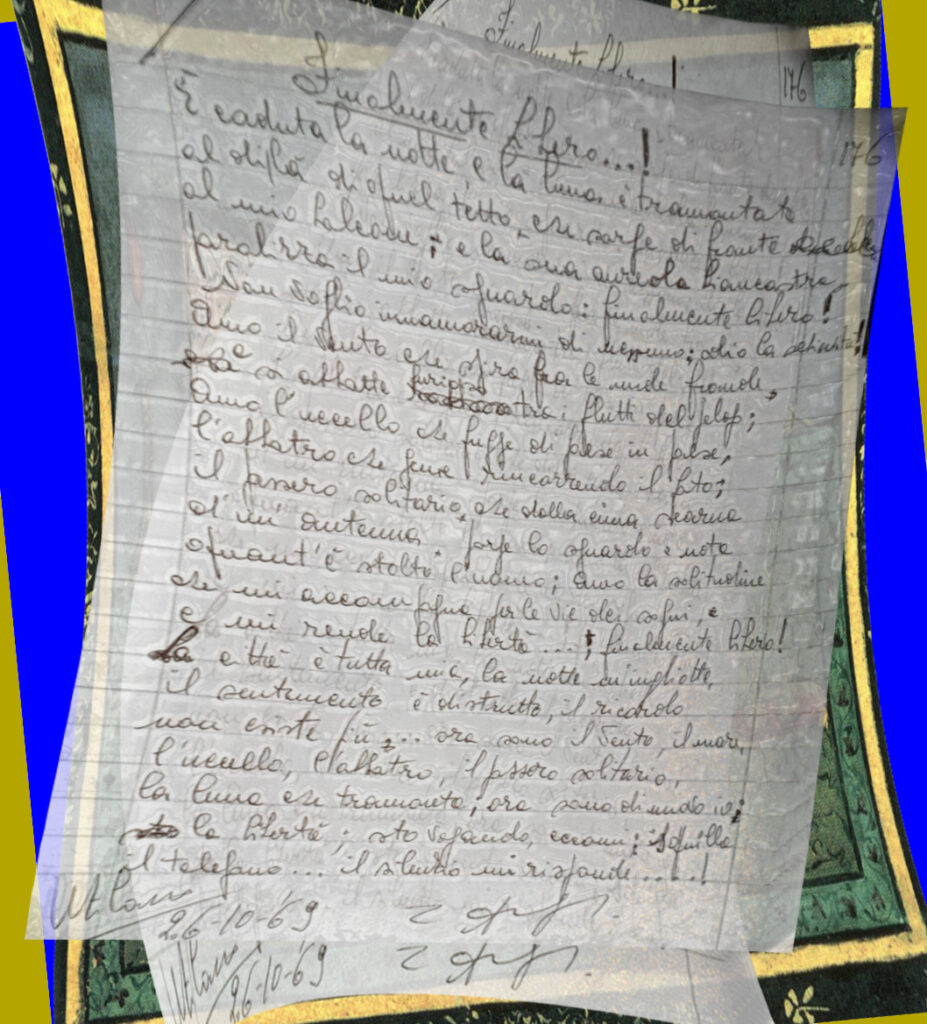 Finalmente libero...!
176
Finalmente libero...!
176
È caduta la notte, e la luna, è tramontata
al di là di quel tetto, che sorge di fronte
al mio balcone; e la sua aureola biancastra
il mio sguardo: finalmente libero!
Non voglio innamorarmi di nessuno; odio la schiavitù!
Amo il vento che spira fra le nude fronde,
e si abbatte tra i flutti del
Amo l'uccello che fugge di paese in paese,
l'albatro che geme rincorrendo il fato;
il passero solitario, che dalla cima scarna
d'un'antenna porge lo sguardo e nota
quant'è stolto l'uomo; amo la solitudine
che mi accompagna per le vie dei sogni, e
e mi rende la libertà ...; finalmente libero!
La città è tutta mia, la notte m'inghiotte,
il sentimento è distrutto, il ricordo
non esiste più,... ora sono il vento, il mare,
l'uccello, l'albatro, il passero solitario,
la luna che tramonta; ora sono di nudo io;
la libertà; sto vagando, eccomi; squilla
il telefono... il silenzio mi risponde.....!
Milano
26-10-69
Milano
26-10-69